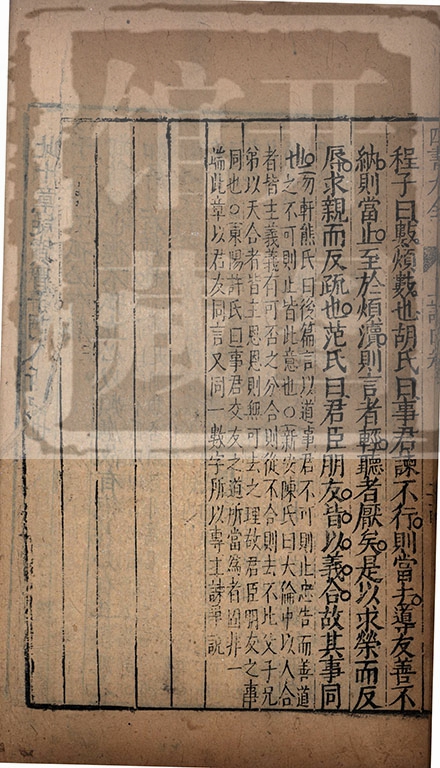 程子曰數煩數也胡氏曰事君諫不行則當去導友善不
納則當止至於煩瀆則言者輕聽者厭矣是以求榮而反
辱求親而反疏也范氏曰君臣朋友皆以義合故其事同
也勿軒熊氏曰後篇言以道事君不可則止忠告而善道
之不可則止皆此意也○新安陳氏曰大倫中以人合
者皆主義義有可否之分合則從不合則去不比父子兄
弟以天合者皆主恩恩則無可去之理故君臣朋友之事
同也○東陽許氏曰事君交友之道所當為者固非一
端此章以君友同言又同一數字所以專主諫諍說